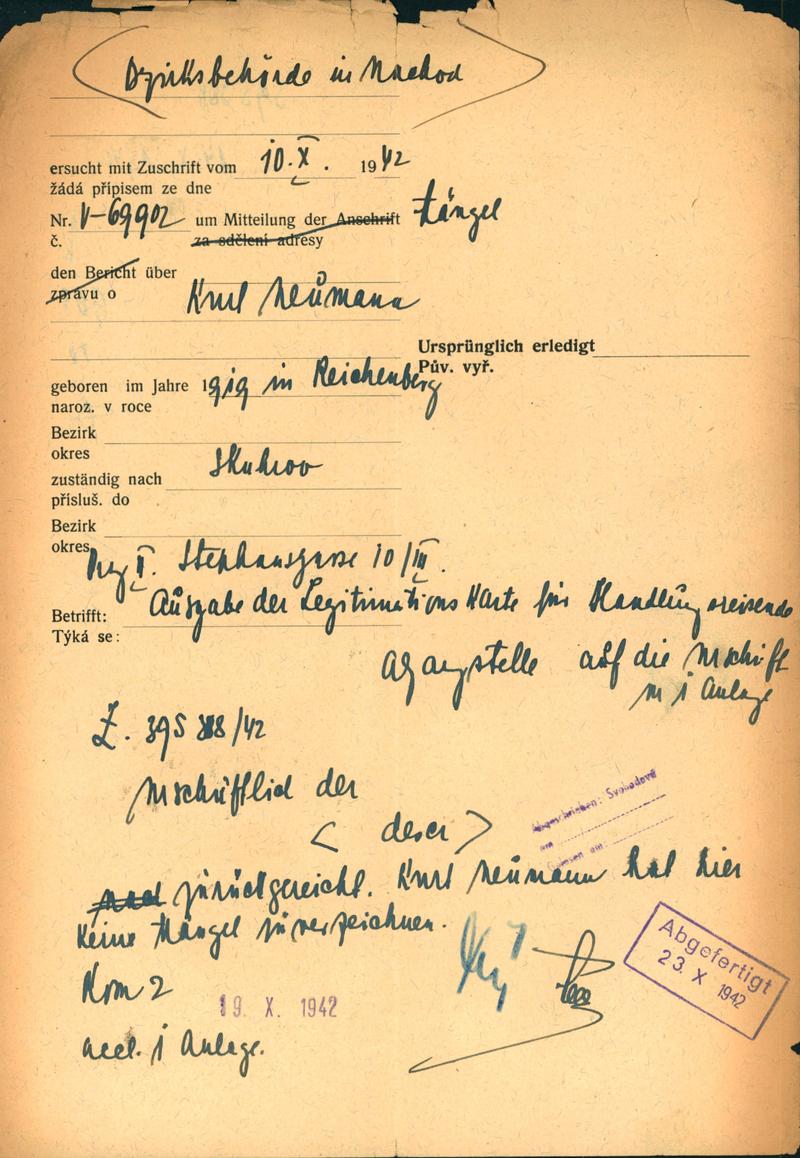 Bezirksbehörde in Nachod
ersucht mit Zuschrift vom 10. X. 1942
žádá přípisem ze dne
Nr. V-69902 um Mitteilung der Anschrift Mängel
č. za sdělení adresy
den Bericht über
zprávu o Kurt Neumann
Ursprünglich erledigt
Pův. vyř.
geboren im Jahre 1919 in Reichenberg
naroz. v roce
Bezirk
okres
zuständig nach Skuhrov
přísluš. do
Bezirk
okres
Prag II. Stephansgasse 10/III.
Betrifft: Ausgabe der Legitimations Karte für Handlungsreisende
Týká se:
Abgangstelle auf die Urschrift
m 1 Anlage
Z. 395 /42
Urschriftlich der
< deser >
zurückgereicht. Kurt Neumann hat hier
keine Mängel zu verzeichnen.
Abgeschrieben: Svobodová
am
Gelesen am:
Kom 2
19. X. 1942
accl. 1 Anlage.
Abgefertigt
23. X 1942